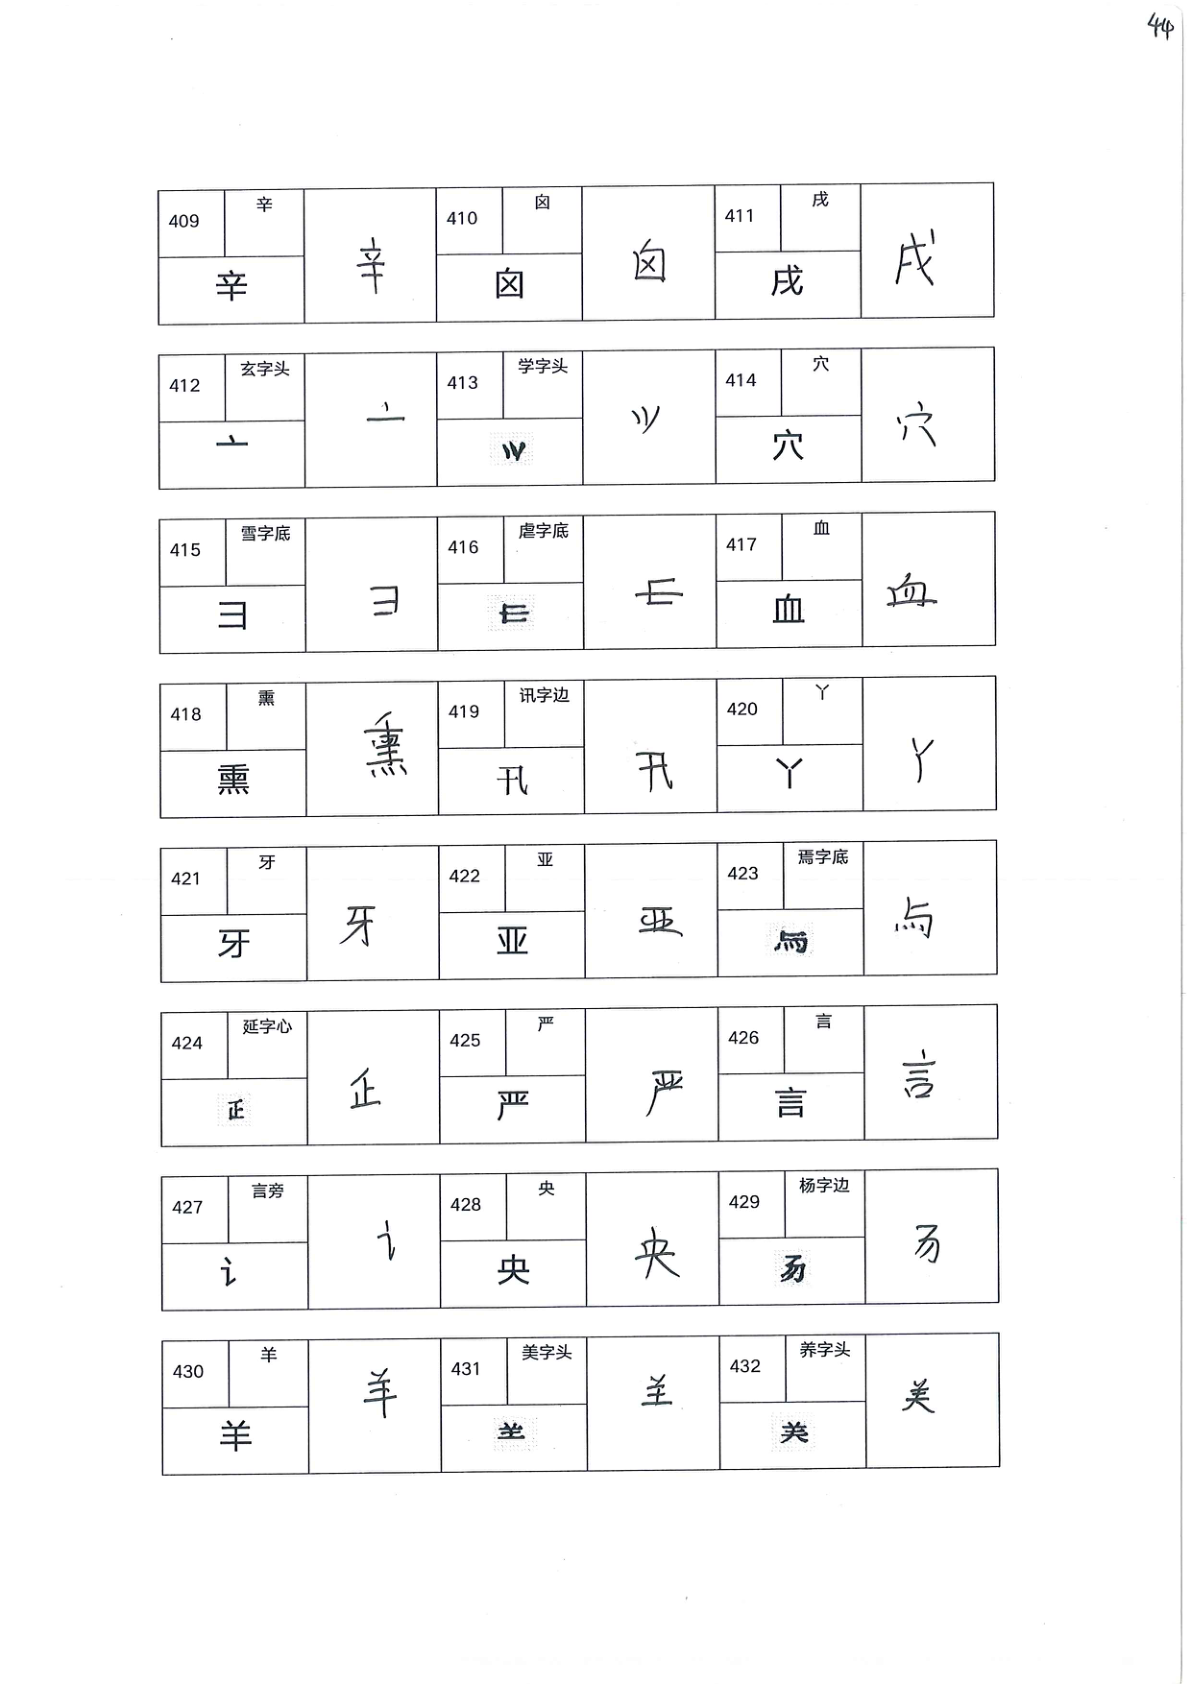 44
409 辛 辛 辛
410 囟 囟 囟
411 戌 戌 戌
412 玄字头 亠 亠
413 学字头
414 穴 穴 穴
415 雪字底 彐 彐
416 虐字底
417 血 血 血
418 熏 熏 熏
419 讯字边 卂 卂
420 丫 丫 丫
421 牙 牙 牙
422 亚 亚 亚
423 焉字底
424 延字心
425 严 严 严
426 言 言 言
427 言旁 讠 讠
428 央 央 央
429 杨字边
430 羊 羊 羊
431 美字头
432 养字头